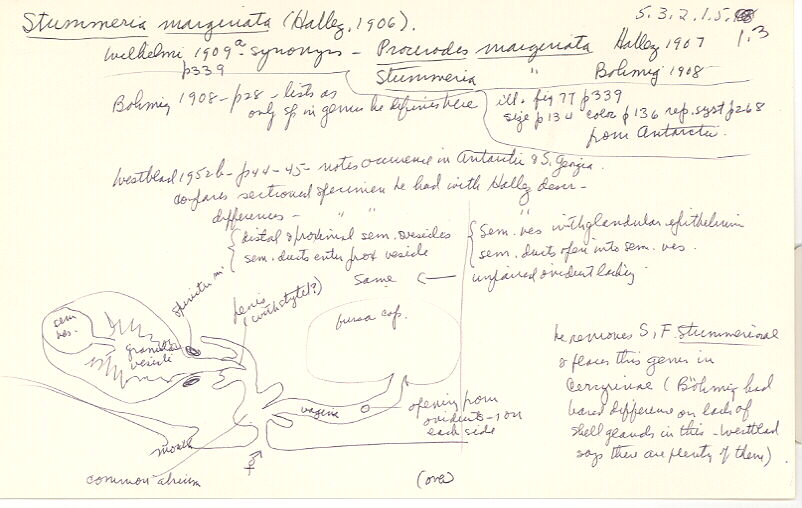 Stummeria marginata (Hallez, 1906).
5.3.2.1.5.
1.3
Wilhelmi 1909a - synonyms - Procerodes marginata Hallez 1907
p339
Stummeria " Bohmig 1908
Bohmig 1908 - p28 - lists as
only sp in genus he defines here
ill. fig 77 p339
size p134 color p136 rep. syst p268
from Antarctic.
Westblad 1952b - p44-45 - notes occurence in Antarctic & S. Georgia.
compares sectioned specimen he had with Hallez descr-
differences - " "
distal & proximal sem. vesicles
sem. ducts enter prox vesicle
Same
Sem. ves with glandular epithelium
sem. ducts open into sem. ves.
unpaired oviduct lacking.
sem
ves.
granular
vesicle
penis
(with stylet?)
bursa cop.
vagina
opening from
oviducts - 1 on
each side
mouth
common atrium
⚥
(over)
he removes S, F. Stummerinae
& places this genus in
Cercyrinae (Böhmig had
based difference on lack of
shell glands in this - Westblad
says there are plenty of them)